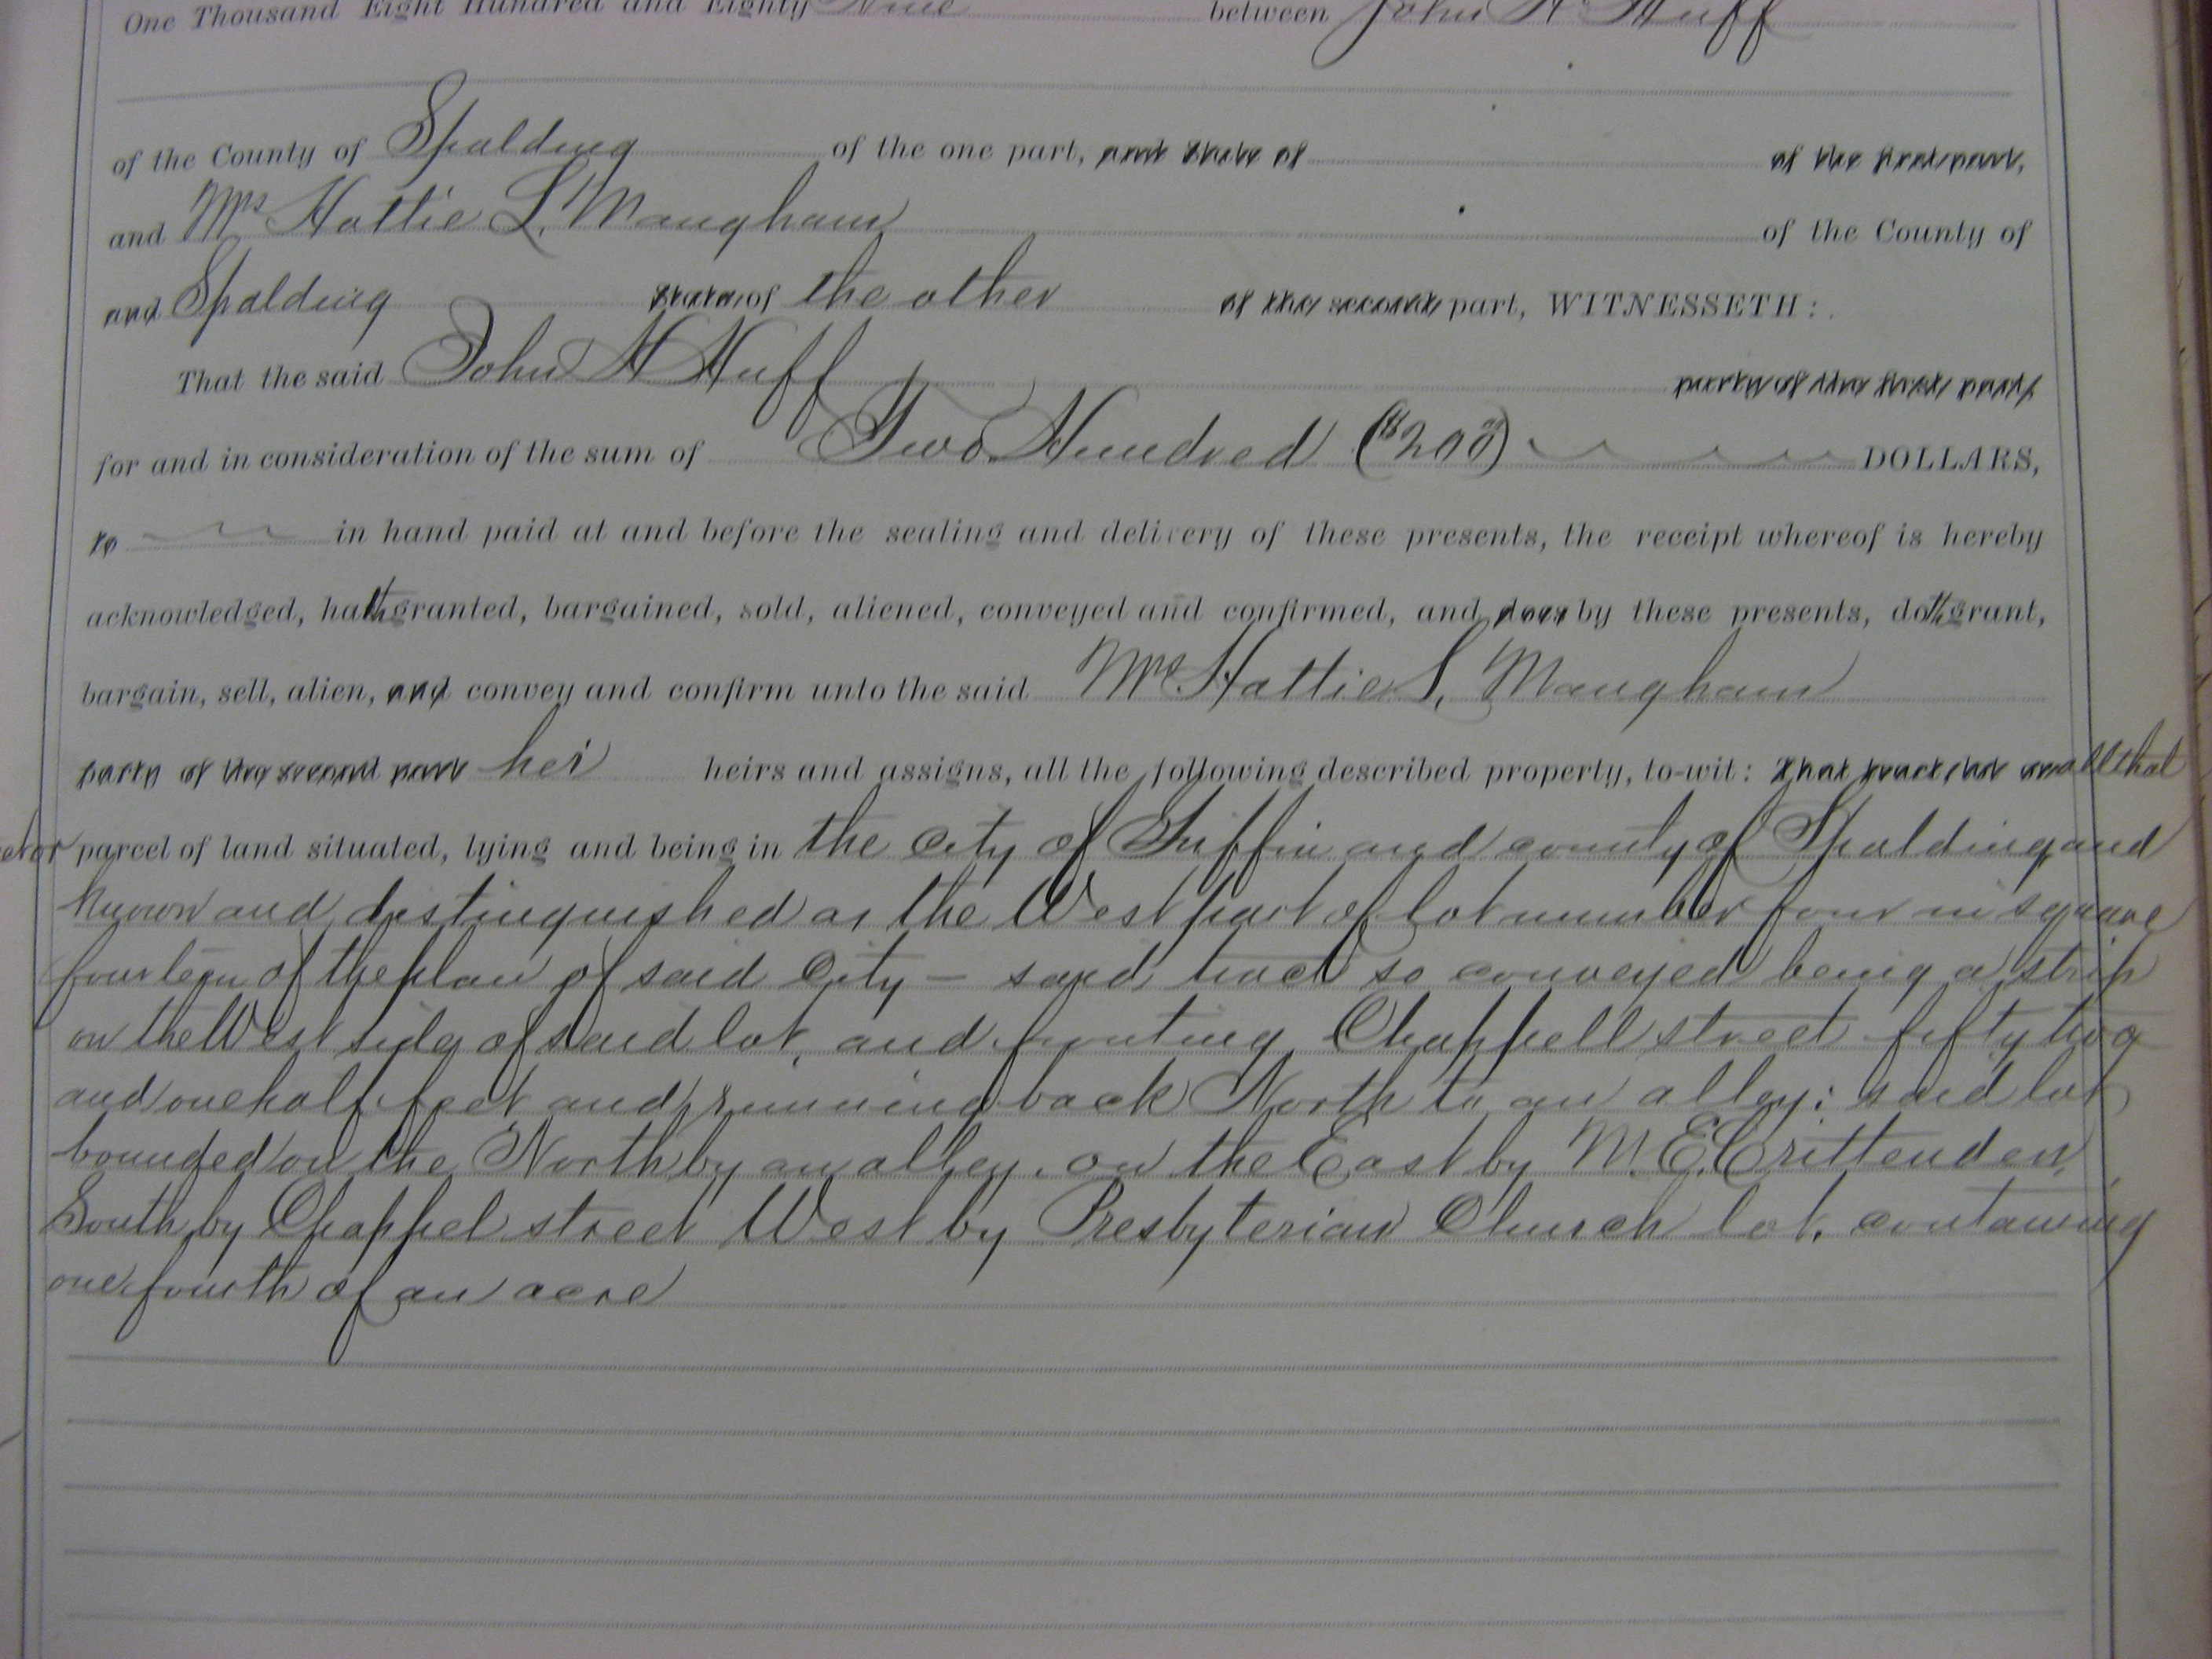 One Thousand Eight Hundred and Eighty Nine between John H Huff
of the County of Spalding of the one part, and State of of the first part,
and Mrs Hattie L. Maugham of the County of
and Spalding State of the other of the second part, WITNESSETH:
That the said John H Huff party of the first part,
for and in consideration of the sum of Two Hundred ($200) DOLLARS,
to in hand paid at and before the sealing and delivery of these presents, the receipt whereof is hereby
acknowledged, hath granted, bargained, sold, aliened, conveyed and confirmed, and does by these presents, doth grant,
bargain, sell, alien, and convey and confirm unto the said Mrs Hattie L. Maugham
party of the second part her heirs and assigns, all the following described property, to-wit: that tract lot or all that
parcel of land situated, lying and being in the City of Griffin and county of Spalding and
known and distinguished as the West part of lot number four in square
fourteen of the plan of said City – said tract so conveyed being a strip
on the West side of said lot, and fronting Chappell street fifty two
and one half feet and running back North to an alley: said lot
bounded on the North by an alley. on the East by M. E. Crittenden,
South by Chappel street West by Presbyterian Church lot. containing
one fourth of an acre